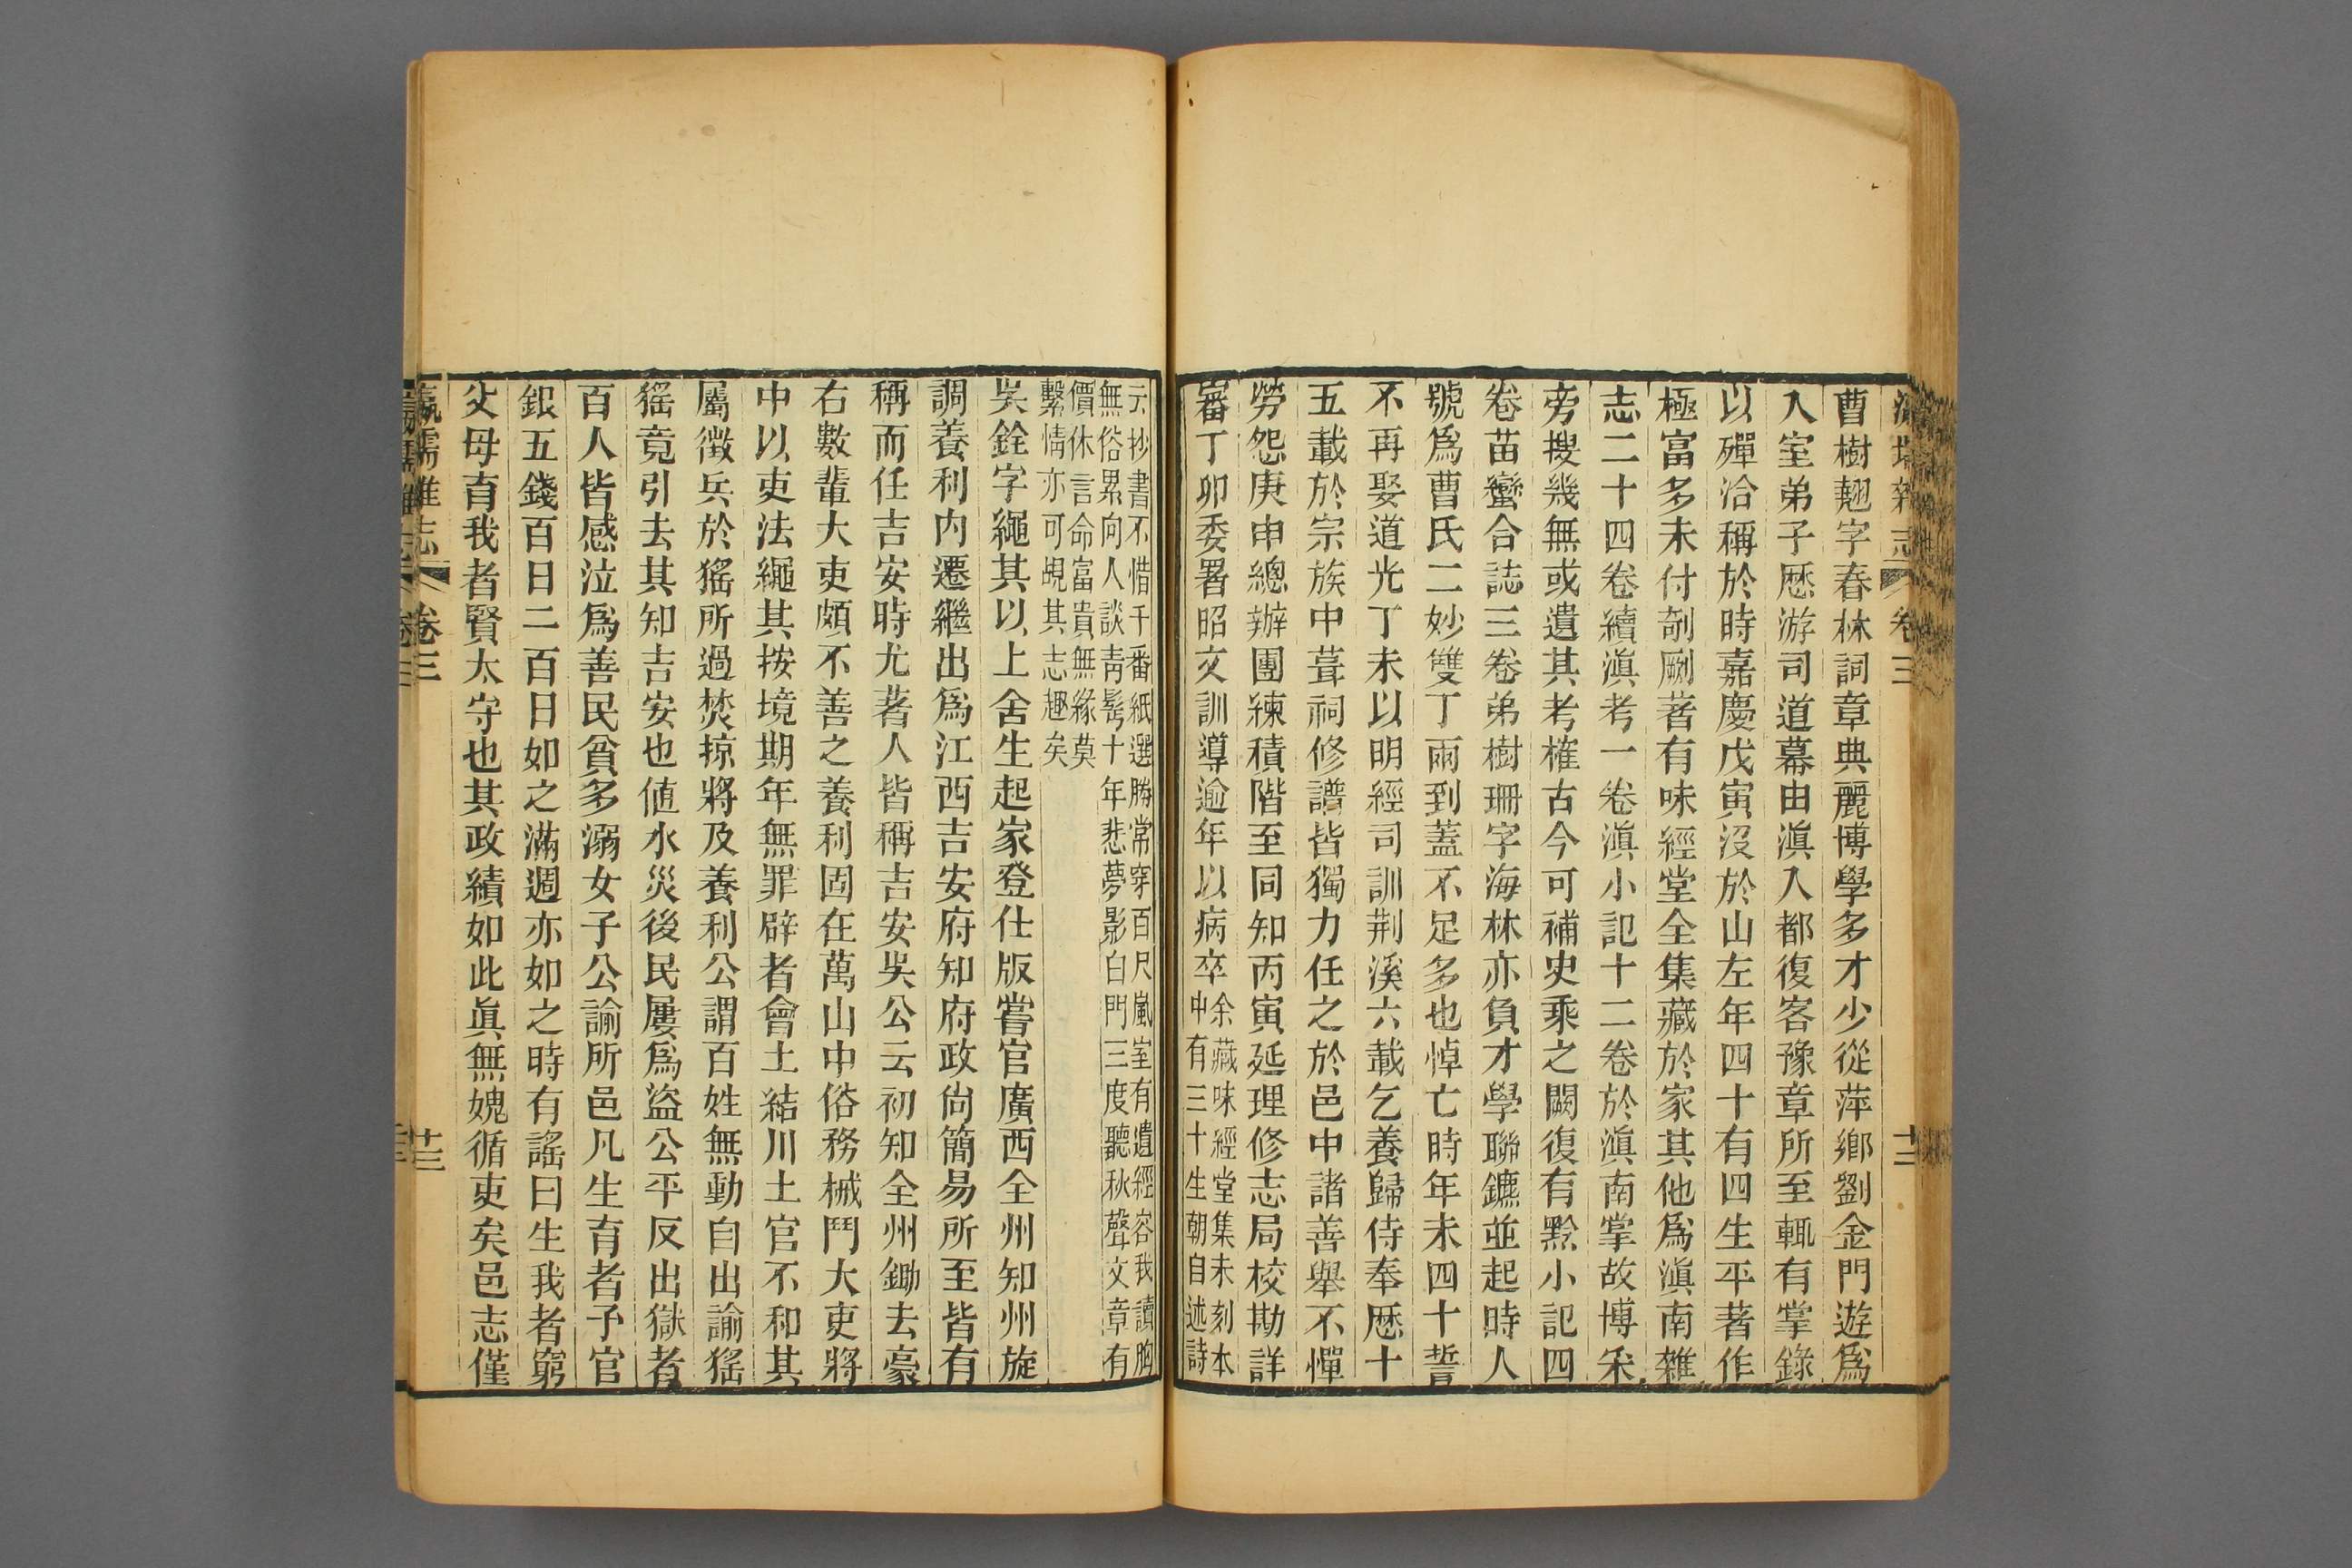 雜志 卷三 十二
曹樹翹字春林詞章典麗博學多才少從萍鄉劉金門遊爲
入室弟子歷游司道幕由滇入都復客豫章所至輒有掌錄
以殫洽稱於時嘉慶戊寅沒於山左年四十有四生平著作
極富多未付剞劂著有味經堂全集藏於家其他爲滇南雜
志二十四卷續滇考一卷滇小記十二卷於滇南掌故博采
旁搜幾無或遺其考榷古今可補史乘之闕復有黔小記四
卷苗蠻合誌三卷弟樹珊字海林亦負才學聯鑣並起時人
號爲曹氏二妙雙丁兩到蓋不足多也悼亡時年未四十誓
不再娶道光丁未以明經司訓荆溪六載乞養歸侍奉歷十
五載於宗族中葺祠修譜皆獨力任之於邑中諸善舉不憚
勞怨庚申總辦團練積階至同知丙寅延理修志局校勘詳
審丁卯委署昭文訓導逾年以病卒余藏味經堂集未刻本
中有三十生朝自述詩
云抄書不惜千番紙選勝常穿百尺嵐室有遺經容我讀胸
無俗累向人談青鬂十年悲夢影白門三度聽秋聲文章有
價休言命富貴無緣莫
繫情亦可覘其志趣矣
吳銓字繩其以上舍生起家登仕版嘗官廣西全州知州旋
調養利内遷繼出爲江西吉安府知府政尚簡易所至皆有
稱而任吉安時尤著人皆稱吉安吳公云初知全州鋤去豪
右數輩大吏頗不善之養利固在萬山中俗務械鬥大吏將
中以吏法繩其按境期年無罪辟者會土結川土官不和其
屬徵兵於猺所過焚掠將及養利公謂百姓無動自出諭猺
猺竟引去其知吉安也値水災後民屢爲盜公平反出獄者
百人皆感泣爲善民貧多溺女子公諭所邑凡生育者予官
銀五錢百日二百日如之滿週亦如之時有謠曰生我者窮
父母育我者賢太守也其政績如此眞無媿循吏矣邑志僅
瀛壖雜志 卷三 十三